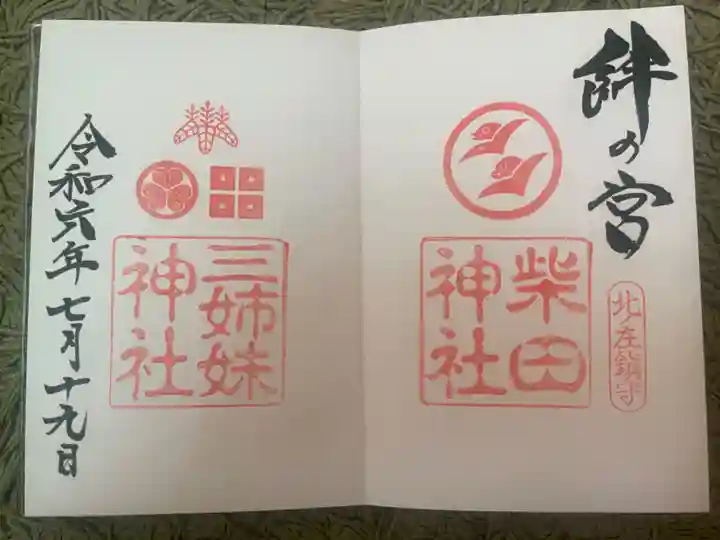 絆の宮
北庄鎮守
柴田
神社
三姉妹
神社
令和六年七月十九日